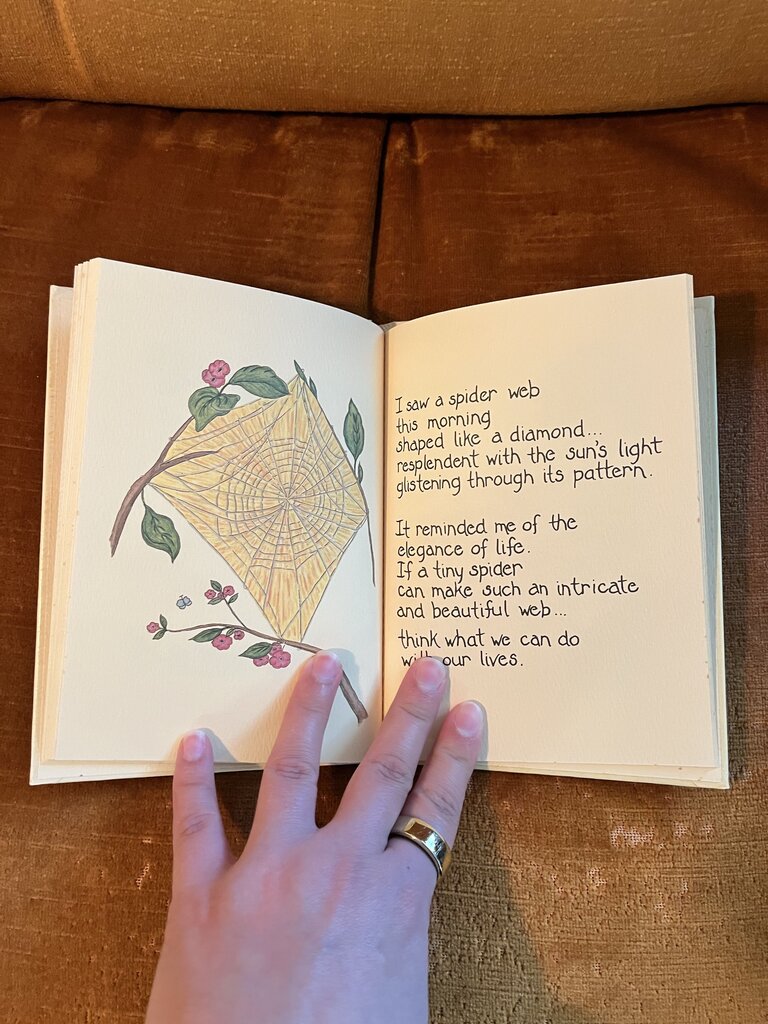 I saw a spider web
this morning
shaped like a diamond...
resplendent with the sun's light
glistening through its pattern.
It reminded me of the
elegance of life.
If a tiny spider
can make such an intricate
and beautiful web...
think what we can do
with our lives.